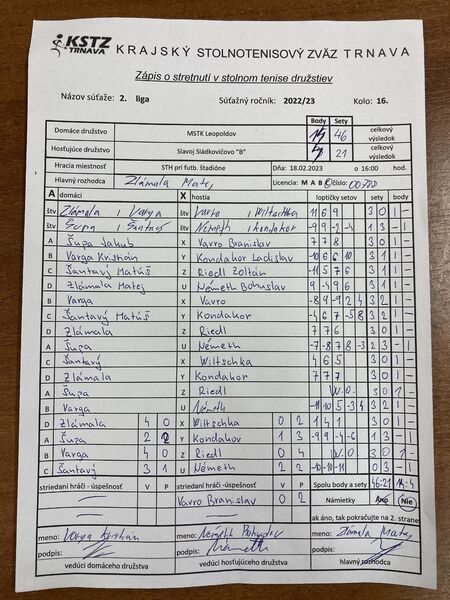 KSTZ TRNAVA KRAJSKÝ STOLNOTENISOVÝ ZVÄZ TRNAVA
Zápis o stretnutí v stolnom tenise družstiev
Názov súťaže: 2. liga Súťažný ročník: 2022/23 Kolo: 16.
Body Sety
Domáce družstvo MSTK Leopoldov 46 celkový výsledok
Hosťujúce družstvo Slavoj Sládkovičovo "B" 4 21 celkový výsledok
Hracia miestnosť STH pri futb. štadióne Dňa: 18.02.2023 o 16:00 hod.
Hlavný rozhodca Zlámala Matej Licencia: M A B C číslo:
A domáci X hostia loptičky setov sety body
štv Zlámala , Varga štv Vavro , Wiltschka 11 6 9 3 0 1 -
štv Šupa , Šantavý štv Németh , Kondakor -9 9 -2 -4 1 3 - 1
A Šupa Jakub X Vavro Branislav 7 7 8 3 0 1 -
B Varga Kristián Y Kondakor Ladislav -10 6 6 10 3 1 1 -
C Šantavý Matúš Z Riedl Zoltán -11 5 7 6 3 1 1 -
D Zlámala Matej U Németh Bohuslav 9 -4 9 6 3 1 1 -
B Varga X Vavro -8 9 -9 2 4 3 2 1 -
C Šantavý Matúš Y Kondakor -4 6 7 -5 8 3 2 1 -
D Zlámala Z Riedl 7 7 6 3 0 1 -
A Šupa U Németh -7 -8 7 8 -3 2 3 - 1
C Šantavý X Wiltschka 4 6 5 3 0 1 -
D Zlámala Y Kondakor 7 7 7 3 0 1 -
A Šupa Z Riedl W.O. 3 0 1 -
B Varga U Németh -11 10 5 -3 4 3 2 1 -
D Zlámala 4 0 X Wiltschka 0 2 1 4 1 3 0 1 -
A Šupa 2 2 Y Kondakor 1 3 -9 9 -4 -6 1 3 - 1
B Varga 4 0 Z Riedl 0 4 W.O. 3 0 1 -
C Šantavý 3 1 U Németh 2 2 -10 -10 -11 0 3 - 1
striedaní hráči - úspešnosť V P striedaní hráči - úspešnosť V P Spolu body a sety 46:21 14:4
Vavro Branislav 0 2 Námietky Áno Nie
ak áno, tak pokračujte na 2. strane
meno: Varga Kristián meno: Németh Bohuslav meno: Zlámala Matej
podpis: podpis: Németh podpis:
vedúci domáceho družstva vedúci hosťujúceho družstva hlavný rozhodca